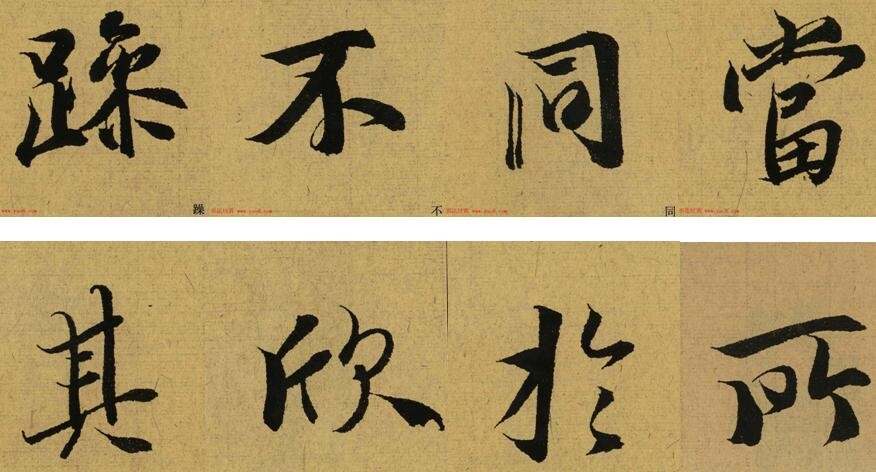 躁不同當
躁 不 同
其欣於所